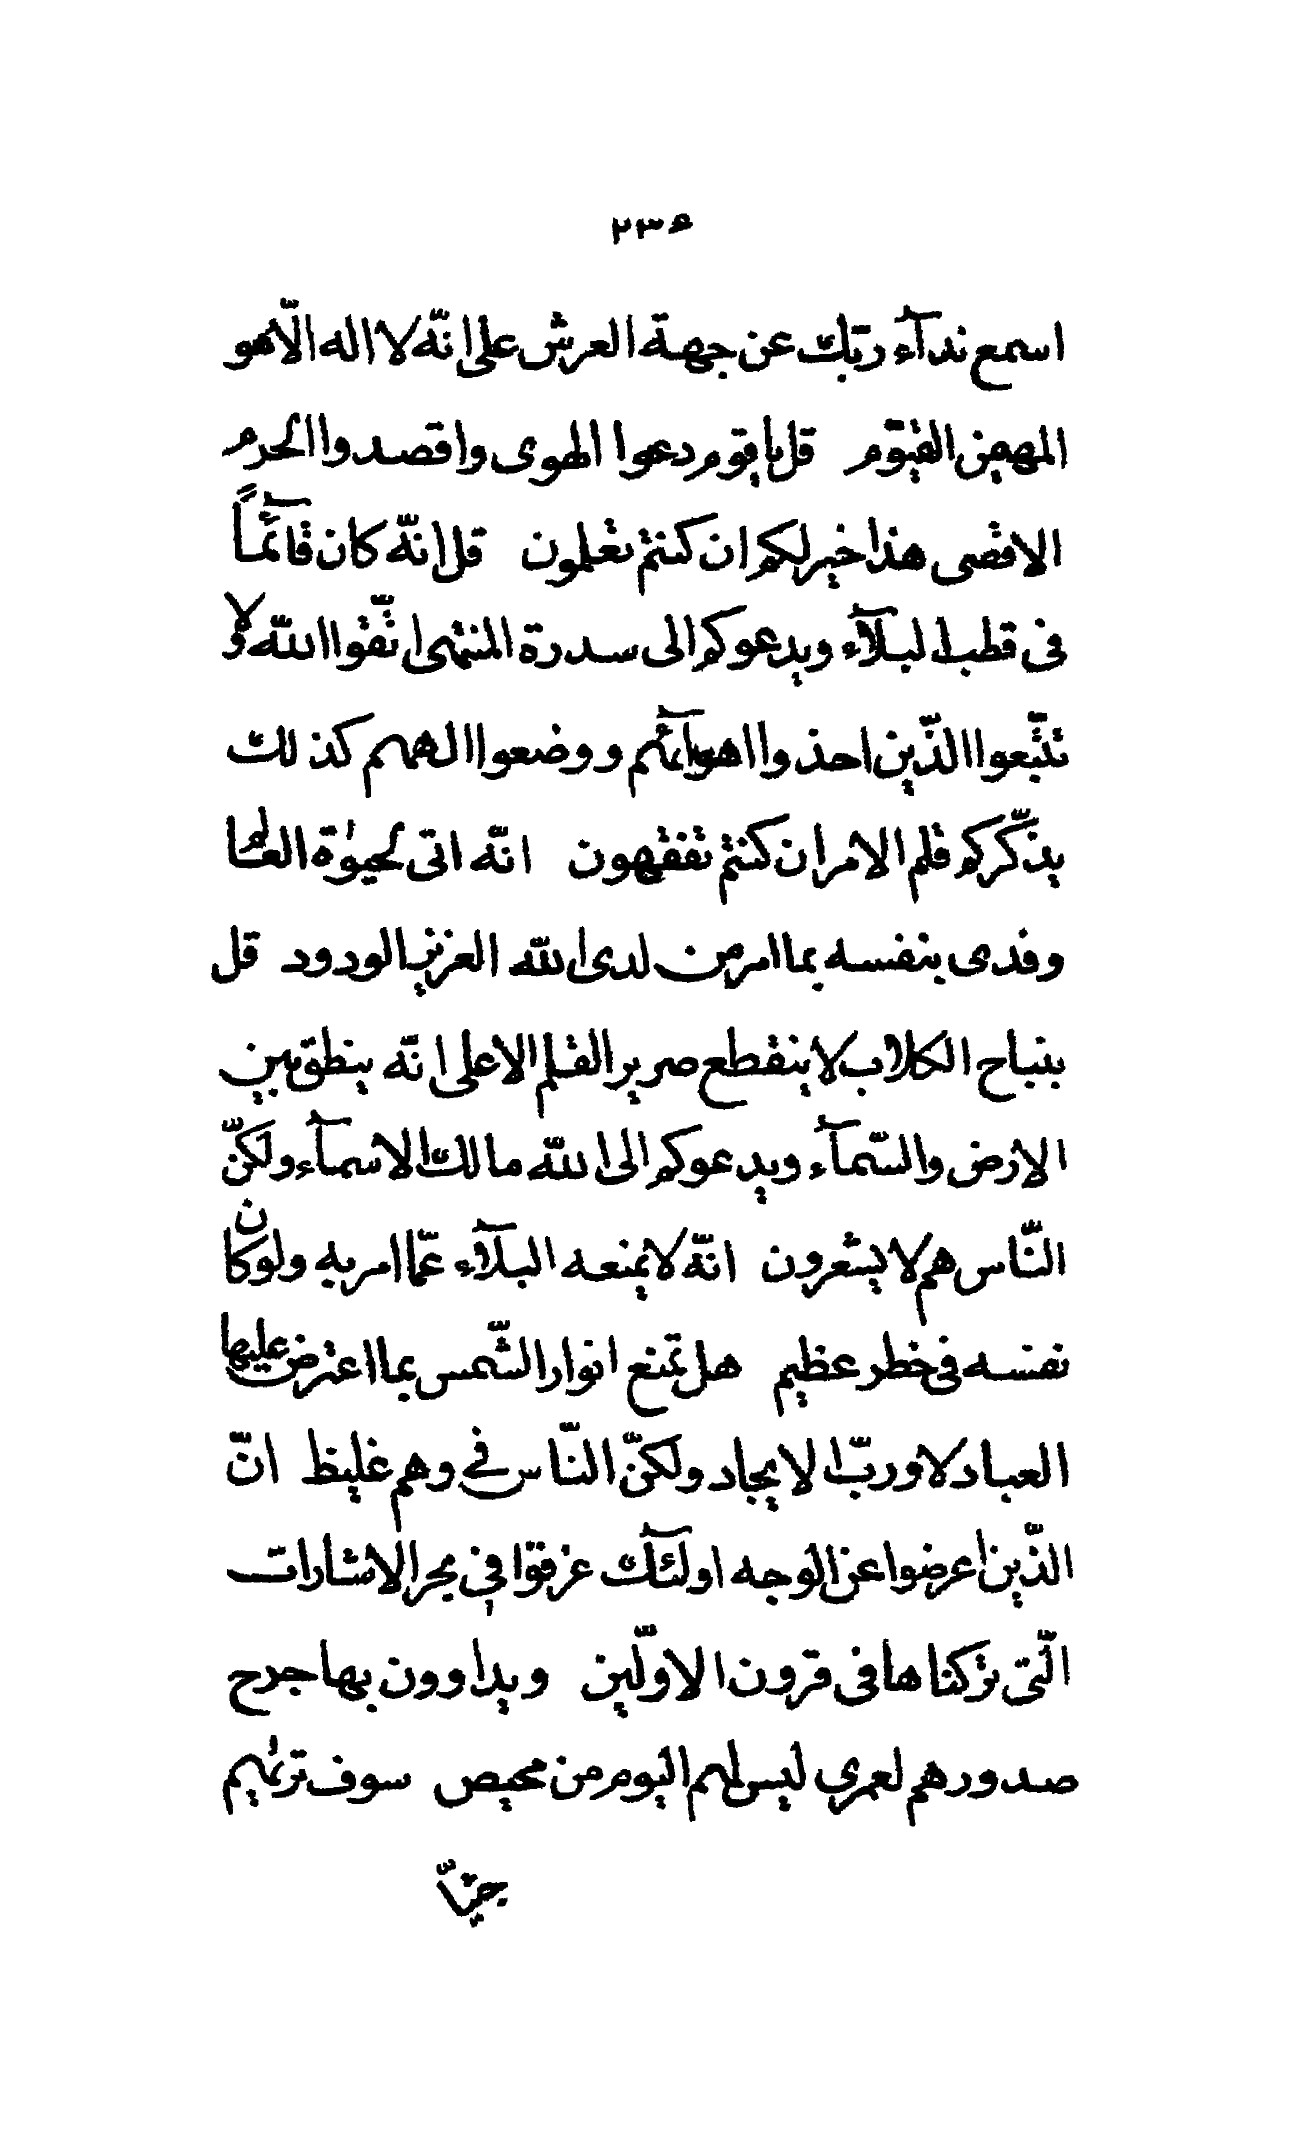 ٢٣٥
اسمع ندآء ربّك عن جهة العرش على انّه لا اله الّا هو
المهيمن القيّوم قل يا قوم دعوا الهوى واقصدوا الحرم
الاقصى هذا خير لكم ان كنتم تعلمون قل انّه كان قآئماً
فى قطب البلآء ويدعوكم الى سدرة المنتهى اتّقوا الله ولا
تتّبعوا الذّين اخذوا اهوآئهم ووضعوا الههم كذلك
يذكّركم قلم الامر ان كنتم تفقهون انّه اتى لحيوٰة العالم
وفدى بنفسه بما امر من لدى الله العزيز الودود قل
بنباح الكلاب لا ينقطع صرير القلم الاعلى انّه ينطق بين
الارض والسّمآء ويدعوكم الى الله مالك الاسمآء ولكنّ
النّاس هم لا يشعرون انّه لا يمنعه البلآء عمّا امر به ولو كان
نفسه فى خطر عظيم هل تمنع انوار الشّمس بما اعترض عليها
العباد لا وربّ الايجاد ولكنّ النّاس فى وهم غليظ انّ
الذّين اعرضوا عن الوجه اولئك غرقوا فى بحر الاشارات
الّتى تركناها فى قرون الاوّلين ويداوون بها جرح
صدورهم لعمرى ليس لهم اليوم من محيص سوف تريٰهم
جثيّاً